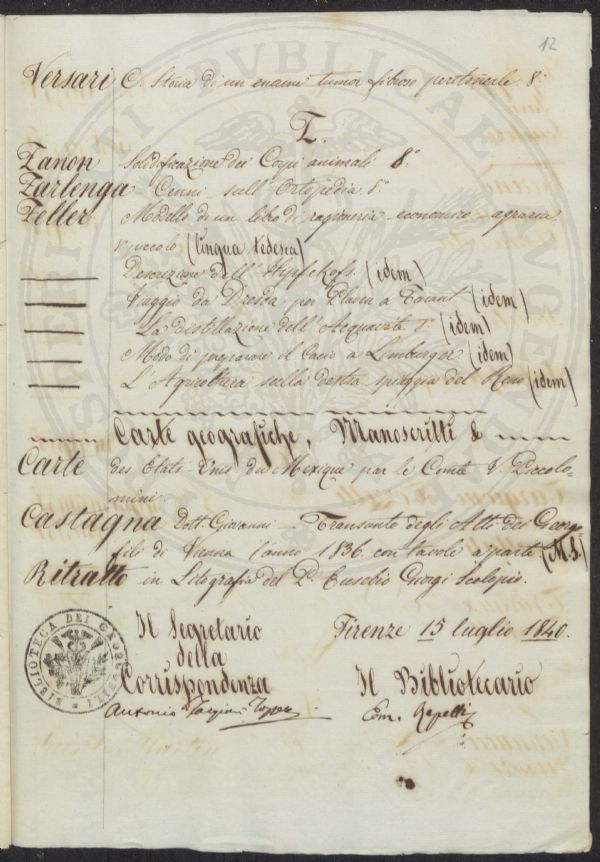 12
Versari C. Storia di un enorme tumor fibroso peritoneale 8.°
Z.
Zanon Solidificazione dei Corpi animali 8.°
Zarlenga Cenni sull' Ortopedia 8.°
Zeller Modello di un libro di ragioneria economico-agraria
8° piccolo (lingua tedesca)
Descrizione dell' (idem)
Viaggio da Dresda per a Tarant (idem)
La distillazione dell' Acquavite 8.° (idem)
Modo di preparare il Cacio a Limburger (idem)
L'Agricoltura sulla destra spiaggia del Reno (idem)
Carte geografiche, Manoscritti &
Carte des Etats-Unis du Mexique par le Comte V. Piccolo-
mini
Castagna Dott. Giovanni - Transunto degli Atti dei Georgo-
fili di Vienna l'anno 1836. con tavole a parte (M.S.)
Ritratto in Litografia del P. Eusebio Giorgi Scolopio.
Il Segretario
della
Corrispondenza
Firenze 15 luglio 1840.
Il Bibliotecario
Antonio Targioni Tozzetti
Em. Repetti
BIBLIOTECA DEI GEORGOFILI